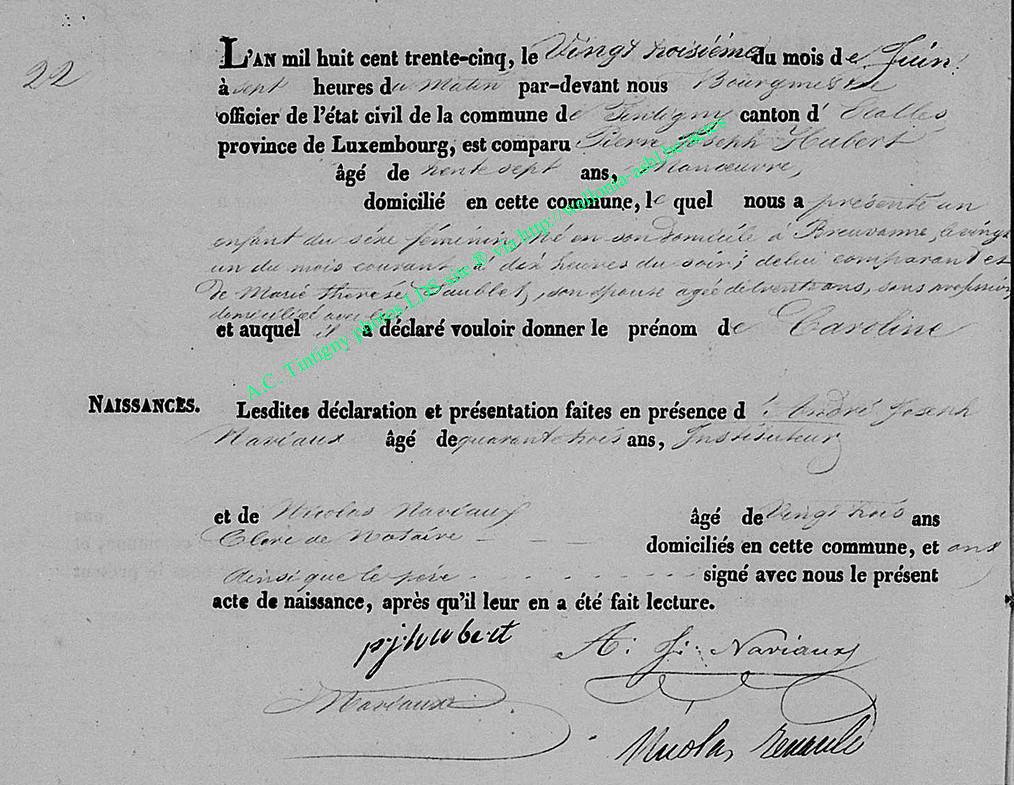 22
L'AN mil huit cent trente-cinq, le Vingt troisième du mois de Juin
à sept heures du Matin par-devant nous Bourgmestre
officier de l'état civil de la commune de Tintigny canton d'Etalles
province de Luxembourg, est comparu Pierre Joseph Hubert
âgé de trente sept ans, Manœuvre,
domicilié en cette commune, le quel nous a présenté un
enfant du séxe féminin, né en son domicile à Breuvanne, le vingt
un du mois courant, à dix heures du soir; de lui comparant et
de Marie thérese, son épouse agée de trente ans, sans profession
domiciliée avec lui
et auquel il a déclaré vouloir donner le prénom de Caroline
NAISSANCES.
Lesdites déclaration et présentation faites en présence d'André Joseph
Naviaux âgé de quarante trois ans, Instituteur
et de Nicolas Naviaux âgé de Vingt trois ans
Clerc de Notaire domiciliés en cette commune, et ont
Ainsi que le père signé avec nous le présent
acte de naissance, après qu'il leur en a été fait lecture.
pjhubert A: J: Naviaux
Naviaux
Nicolas
A.C. Tintigny photos LDS site © via http://wallonia-asbl.be/actes